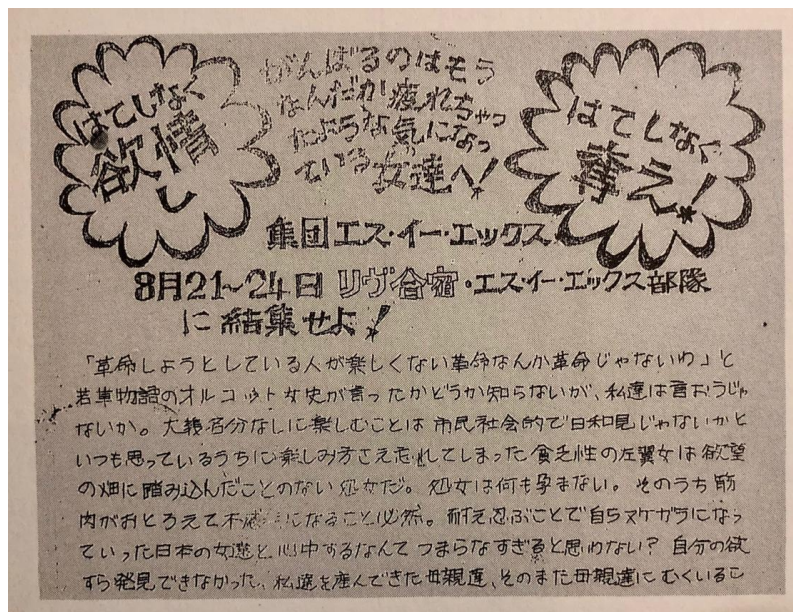 はてしなく
欲情
し
がんばるのはもう
なんだか疲れちゃっ
たような気になっ
ている女達へ!
はてしなく
奪え!
集団エス・イー・エックス
8月21~24日 リヴ合宿・エス・イー・エックス部隊
に結集せよ!
「革命しようとしている人が楽しくない革命なんか革命じゃないわ」と
若草物語のオルコット女史が言ったかどうか知らないが、私達は言おうじゃ
ないか。大義名分なしに楽しむことは市民社会的で日和見じゃないかと
いつも思っているうちに楽しみ方さえ忘れてしまった貧乏性の左翼女は欲望
の畑に踏み込んだことのない処女だ。処女は何も孕まない。そのうち筋
肉がおとろえて不感症になること必然。耐え忍ぶことで自らヌケガラになっ
ていった日本の女達と心中するなんてつまらなすぎると思わない?自分の欲
すら発見できなかった、私達を産んできた母親達、そのまた母親達にむくいるこ